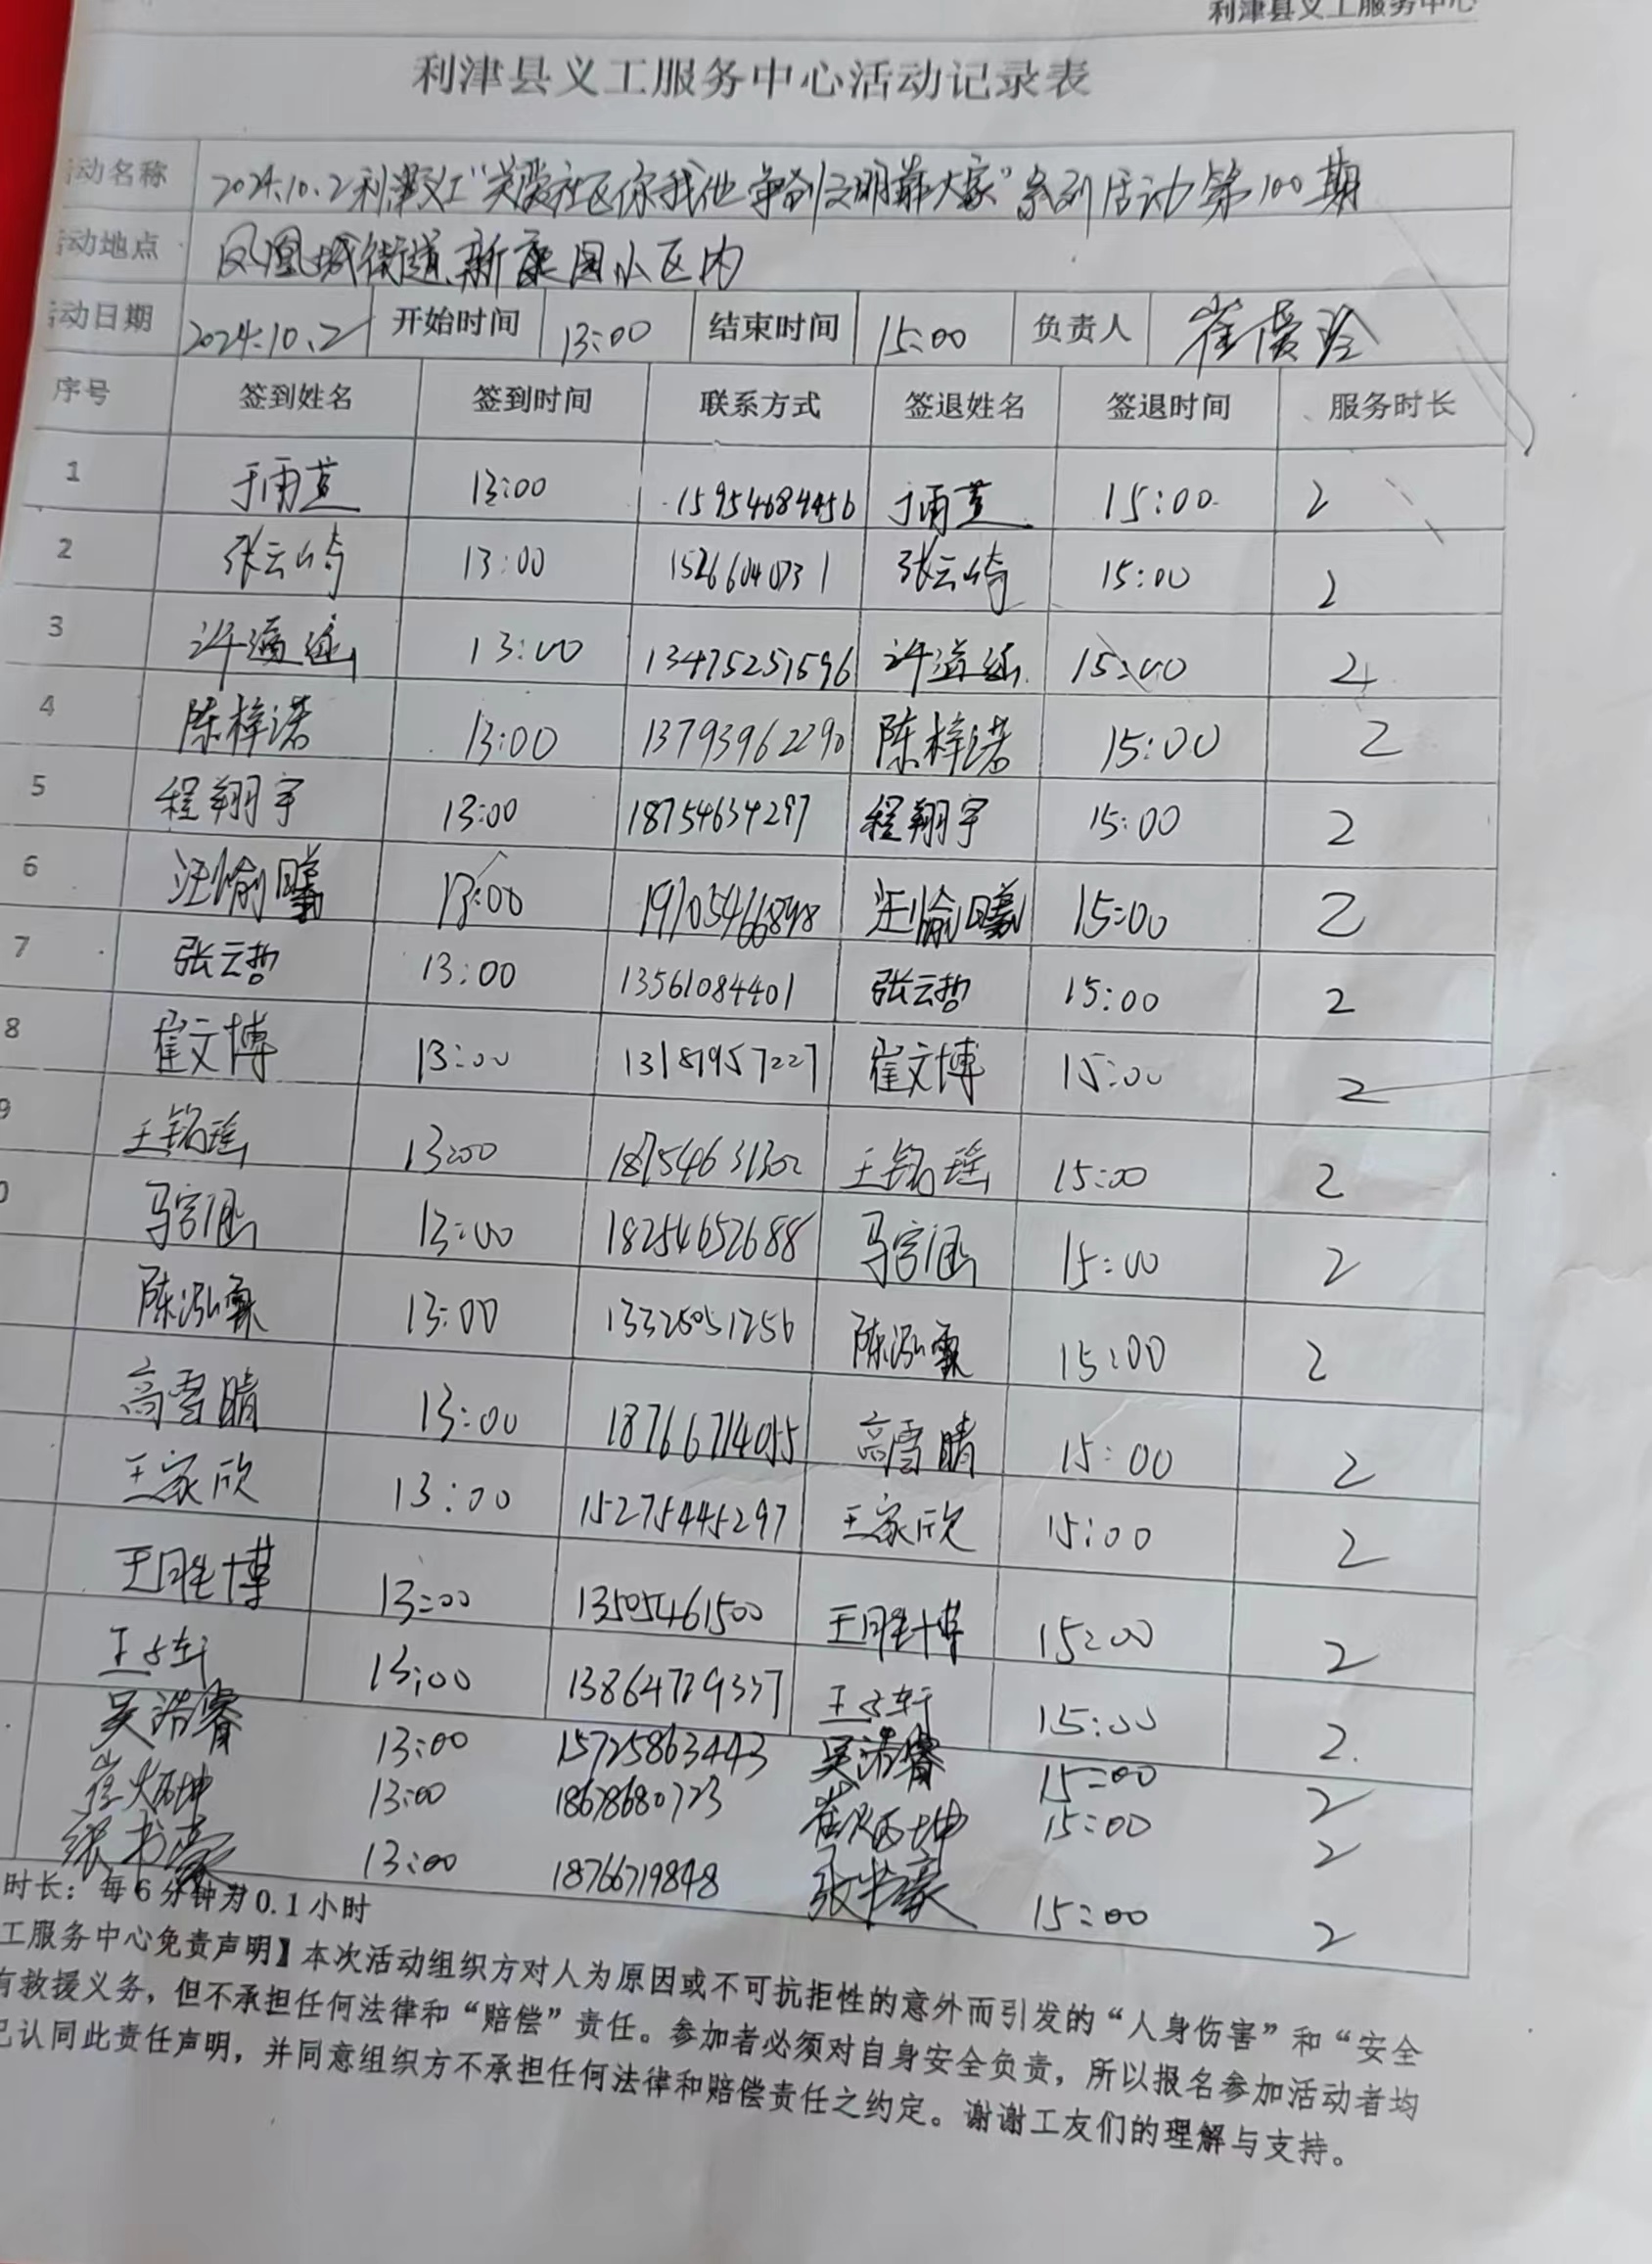 利津县义工服务中心
利津县义工服务中心活动记录表
动名称 2024.10.2利津义工"关爱社区你我他 争创文明靠大家"系列活动第100期
动地点 凤凰城街道新康园小区内
动日期 2024.10.2 开始时间 13:00 结束时间 15:00 负责人 崔
序号 签到姓名 签到时间 联系方式 签退姓名 签退时间 服务时长
1 于雨萱 13:00 15954684456 于雨萱 15:00 2
2 张云崎 13:00 15266040731 张云崎 15:00 2
3 许 13:00 13475251596 许 15:00 2
4 陈梓诺 13:00 13793962290 陈梓诺 15:00 2
5 程翔宇 13:00 18754634297 程翔宇 15:00 2
6 汪愉曦 13:00 15:00 2
7 张云哲 13:00 13561084401 张云哲 15:00 2
8 崔文博 13:00 13181957227 崔文博 15:00 2
9 王铭瑶 13:00 18754631302 王铭瑶 15:00 2
0 马宫涵 13:00 18254652688 马宫涵 15:00 2
陈泓霖 13:00 13325051256 陈泓霖 15:00 2
高雪晴 13:00 18766714055 高雪晴 15:00 2
王家欣 13:00 15275445297 王家欣 15:00 2
王胜博 13:00 13505461500 王胜博 15:00 2
王子轩 13:00 13864729337 王子轩 15:00 2
吴浩睿 13:00 15725863443 吴浩睿 15:00 2
崔炳坤 13:00 18678680723 崔炳坤 15:00 2
张书豪 13:00 18766719848 张书豪 15:00 2
时长：每6分钟为0.1小时
工服务中心免责声明】本次活动组织方对人为原因或不可抗拒性的意外而引发的“人身伤害”和“安全
有救援义务，但不承担任何法律和“赔偿”责任。参加者必须对自身安全负责，所以报名参加活动者均
已认同此责任声明，并同意组织方不承担任何法律和赔偿责任之约定。谢谢工友们的理解与支持。